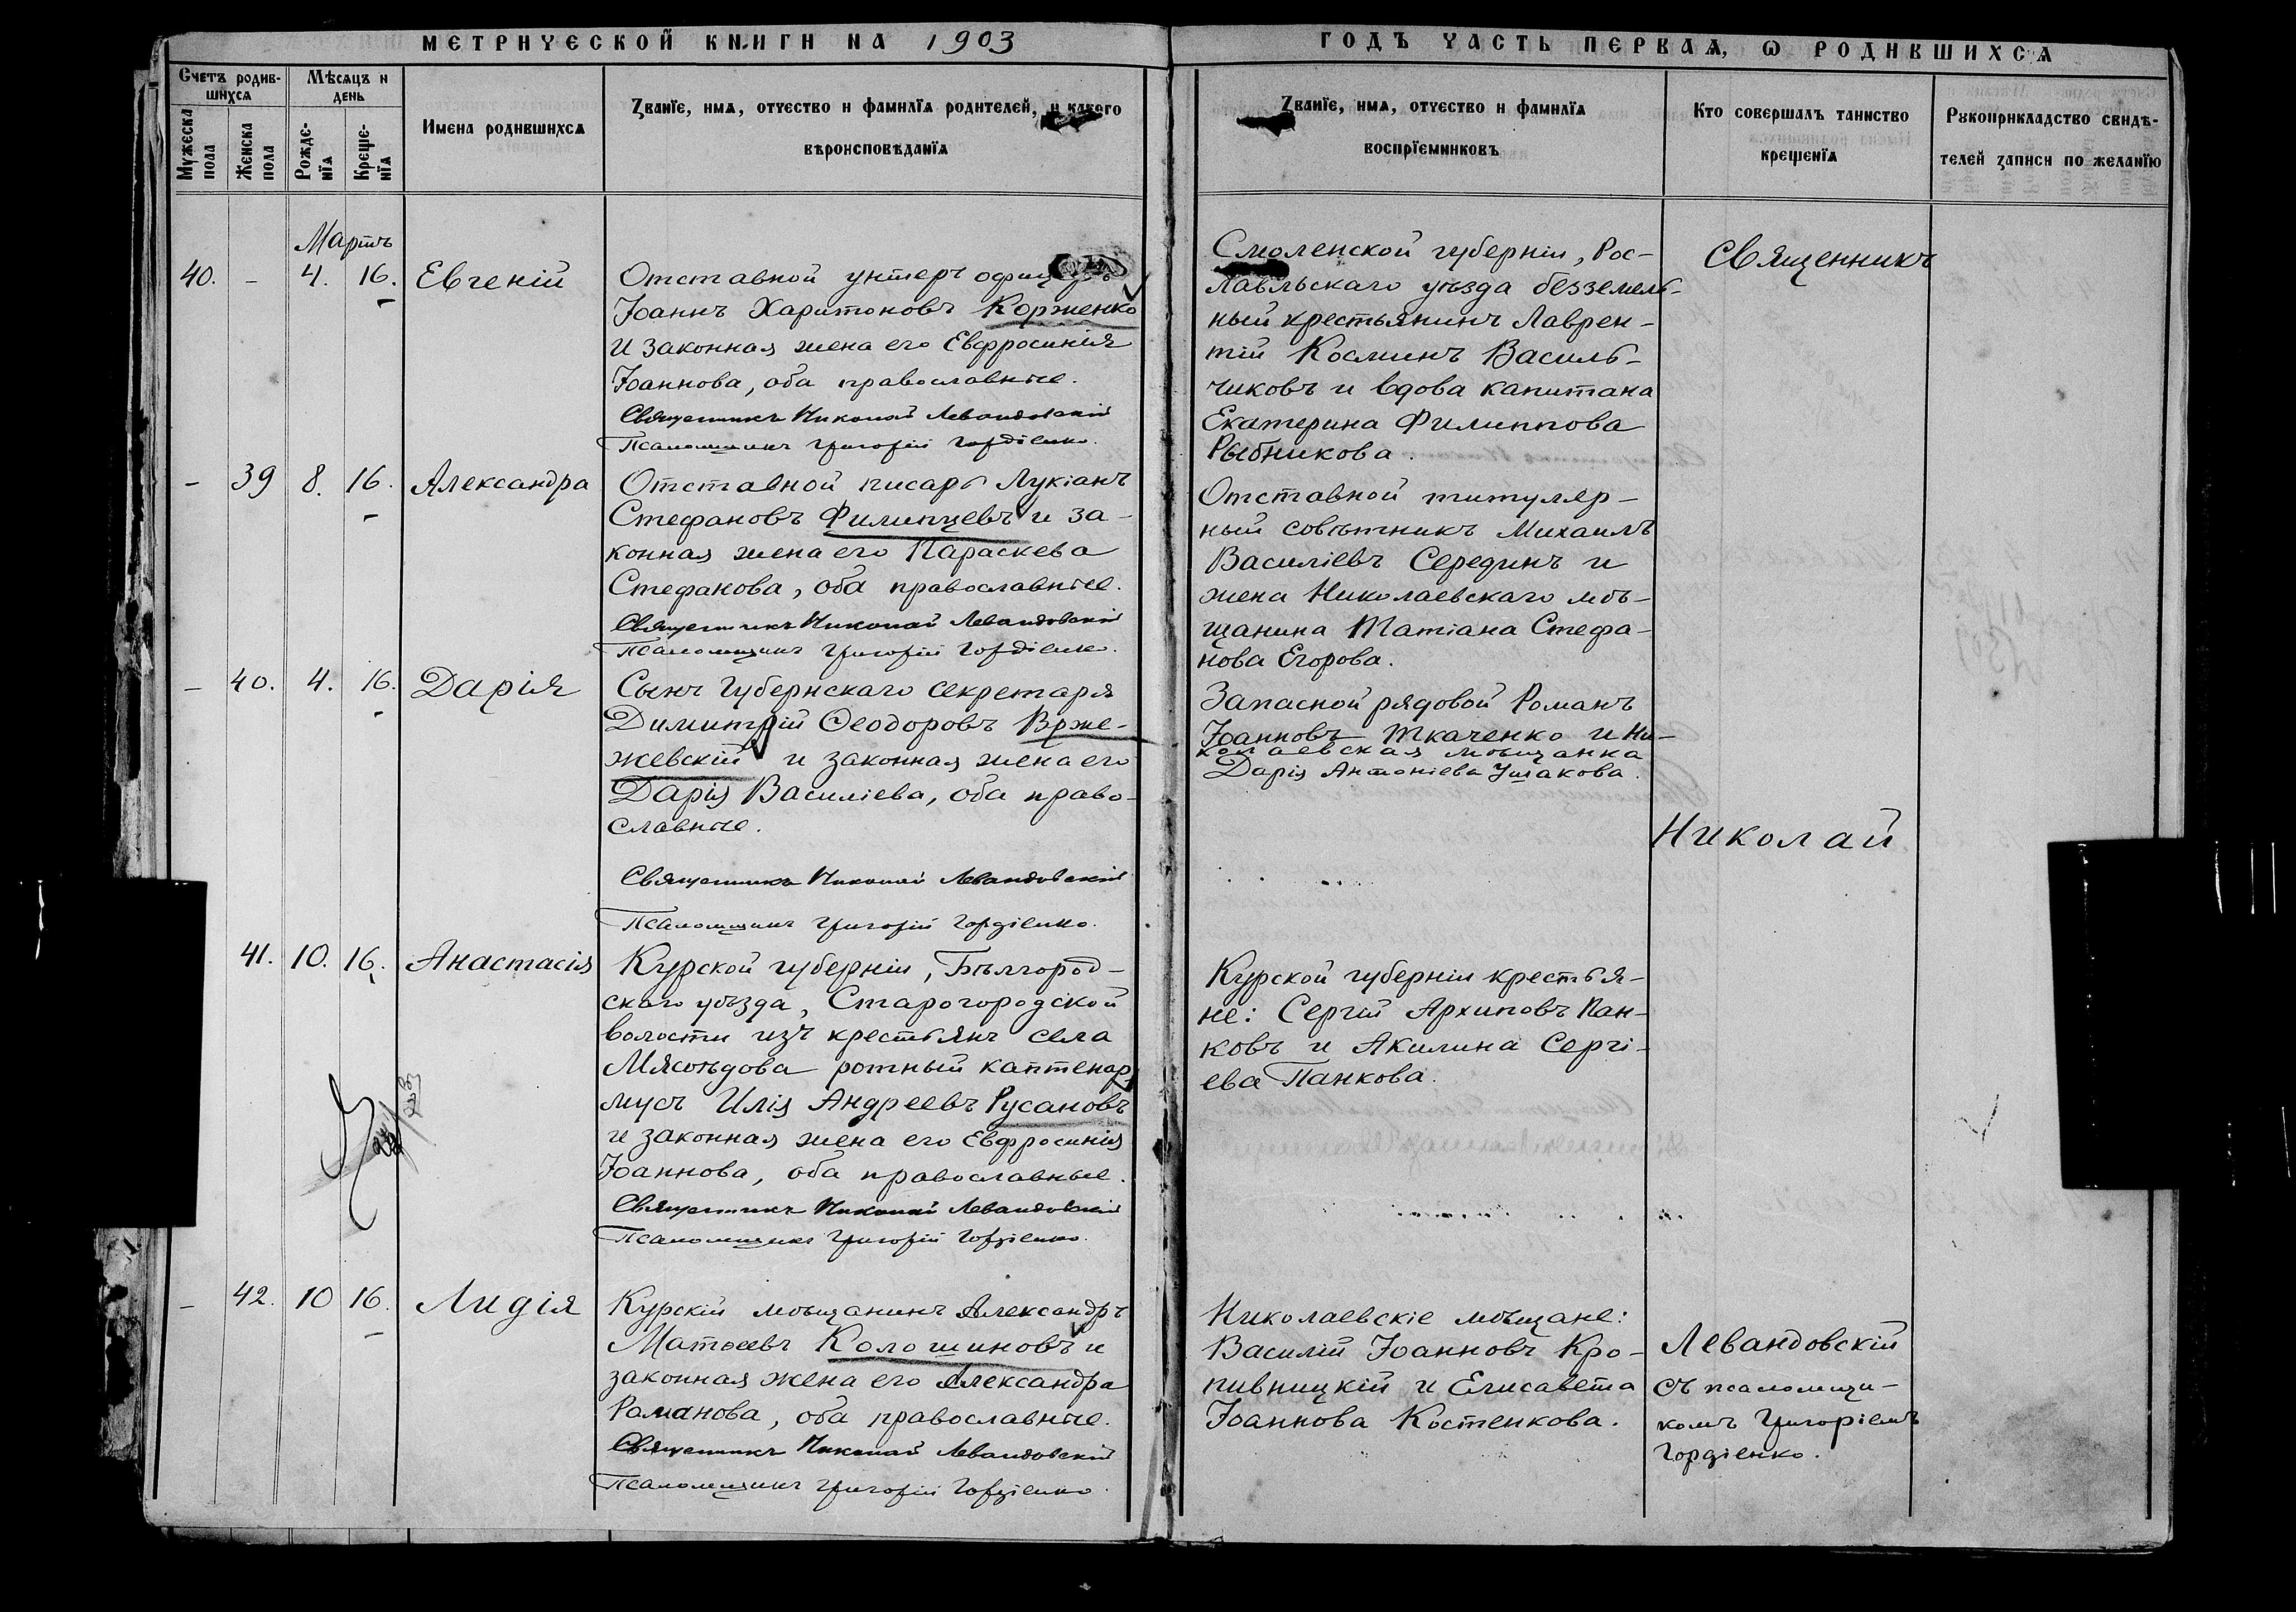 МЕТРИЧЕСКОЙ КНИГИ НА 1903
ГОДЪ ЧАСТЬ ПЕРВАЯ, Ѡ РОДИВШИХСЯ
Счетъ родив-
шихся
Мѣсяцъ и
день
Мужеска
пола
Женска
пола
Рожде-
нїя
Креще-
нїя
Имена родившихся
Званїе, имя, отчество и фамилїя родителей, и какого
вѣроисповѣданїя
Званїе, имя, отчество и фамилїя
воспрїемниковъ
Кто совершалъ таинство
крещенїя
Рукоприкладство свидѣ-
телей записи по желанїю
Мартъ
40. - 4. 16. Евгеній
Отставной унтеръ офиц
Іоаннъ Харитоновъ Корженко
и законная жена его Евфросинія
Іоаннова, оба православные.
Священникъ Николай Левандовскій
Псаломщикъ Григорій Гордіенко.
Смоленской губерніи, Рос-
лавльскаго уѣзда безземель-
ный крестьянинъ Лаврен-
тій Косминъ Василь-
чиковъ и вдова капитана
Екатерина Филиппова
Рыбникова.
Священникъ
- 39 8. 16. Александра
Отставной писарь Лукіанъ
Стефановъ Филипцевъ и за-
конная жена его Параскева
Стефанова, оба православные.
Священникъ Николай Левандовскій
Псаломщикъ Григорій Гордіенко.
Отставной титуляр-
ный совѣтникъ Михаилъ
Василіевъ Серединъ и
жена Николаевскаго мѣ-
щанина Татіана Стефа-
нова Егорова.
- 40. 4. 16. Дарія
Сынъ Губернскаго секретаря
Димитрій Ѳеодоровъ Врже-
жевскій и законная жена его
Дарія Василіева, оба право-
славные.
Священникъ Николай Левандовскій
Псаломщикъ Григорій Гордіенко.
Запасной рядовой Романъ
Іоанновъ Ткаченко и Ни-
колаевская мѣщанка
Дарія Антоніева Ушакова.
Николай
41. 10. 16. Анастасія
Курской губерніи, Бѣлгород-
скаго уѣзда, Старогородской
волости изъ крестьянъ села
Мясоѣдова ротный каптенар-
мусъ Илія Андреевъ Русановъ
и законная жена его Евфросинія
Іоаннова, оба православные.
Священникъ Николай Левандовскій
Псаломщикъ Григорій Гордіенко.
Курской губерніи крестья-
не: Сергій Архиповъ Пан-
ковъ и Акилина Сергі-
ева Панкова.
- 42. 10 16. Лидія
Курскій мѣщанинъ Александръ
Матѳеевъ Колошиновъ и
законная жена его Александра
Романова, оба православные.
Священникъ Николай Левандовскій
Псаломщикъ Григорій Гордіенко.
Николаевскіе мѣщане:
Василій Іоанновъ Кро-
пивницкій и Елисавета
Іоаннова Костенкова.
Левандовскій
съ псаломщи-
комъ Григоріемъ
Гордіенко.